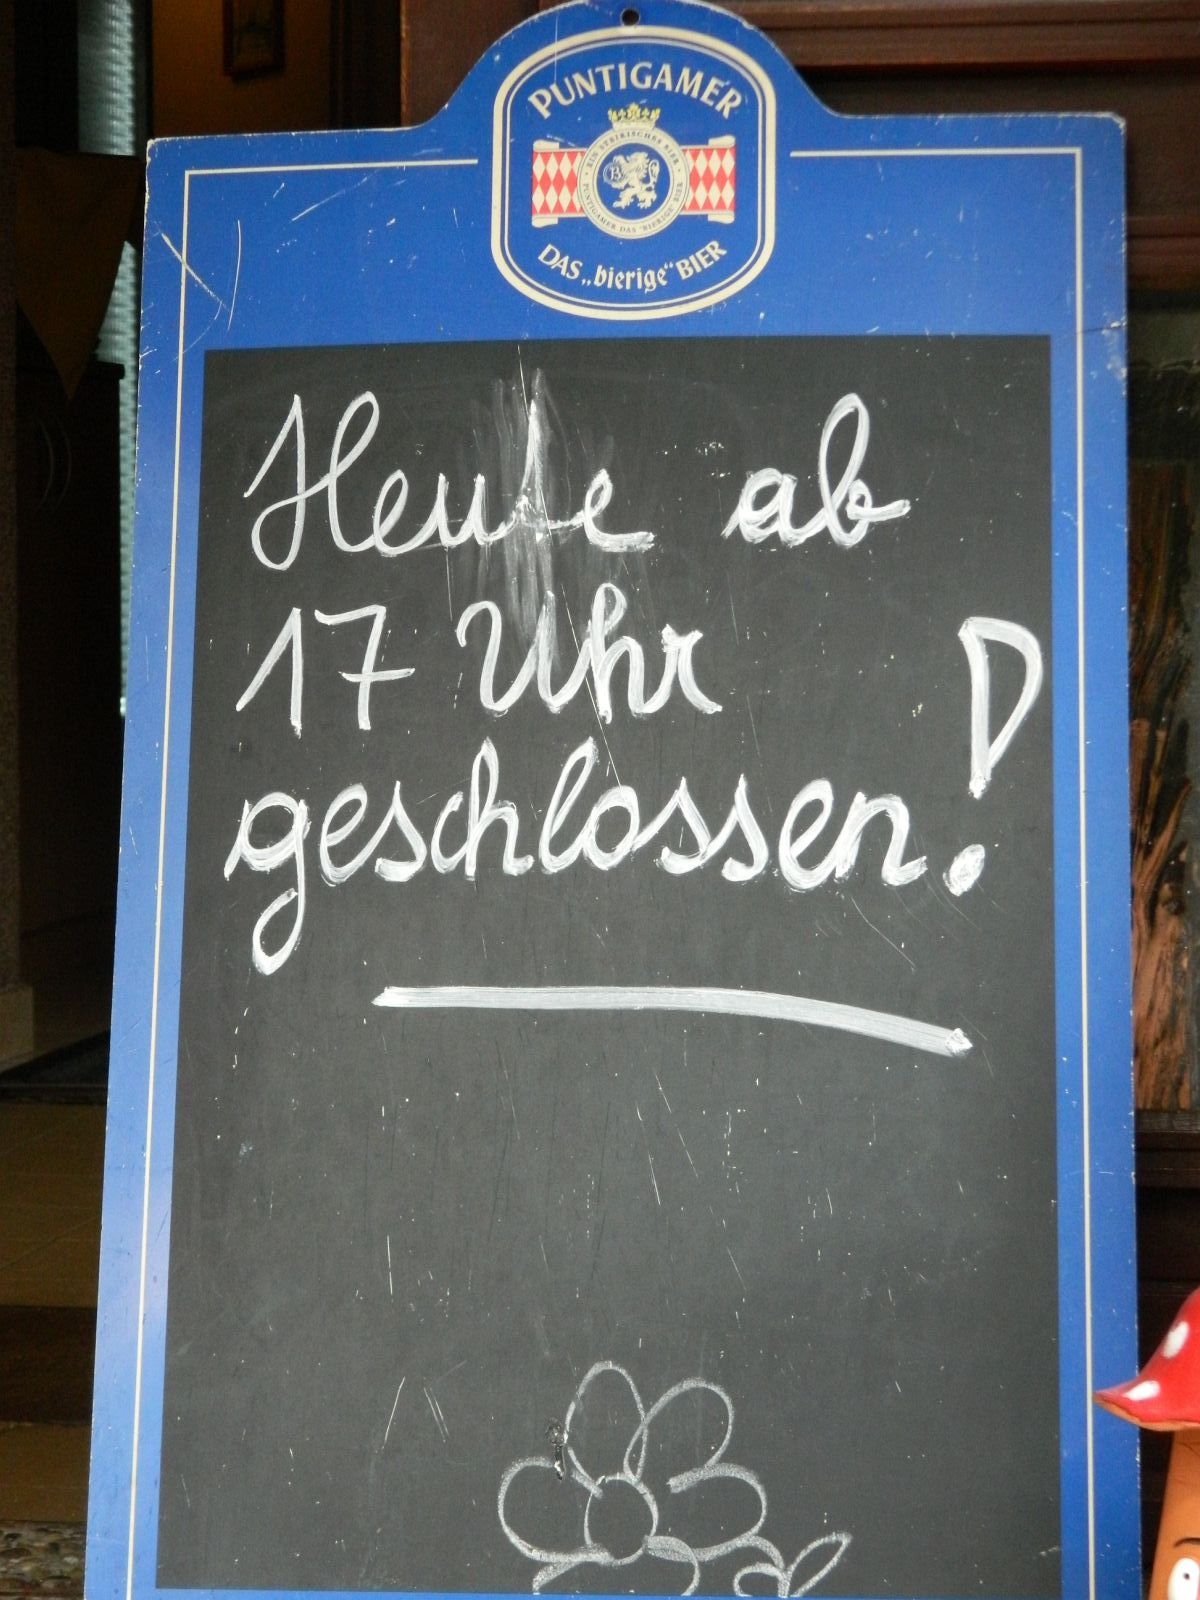 PUNTIGAMER
EIN STEIRISCHES BIER
PUNTIGAMER DAS "BIERIGE" BIER
DAS „bierige“ BIER
Heute ab
17 Uhr
geschlossen!